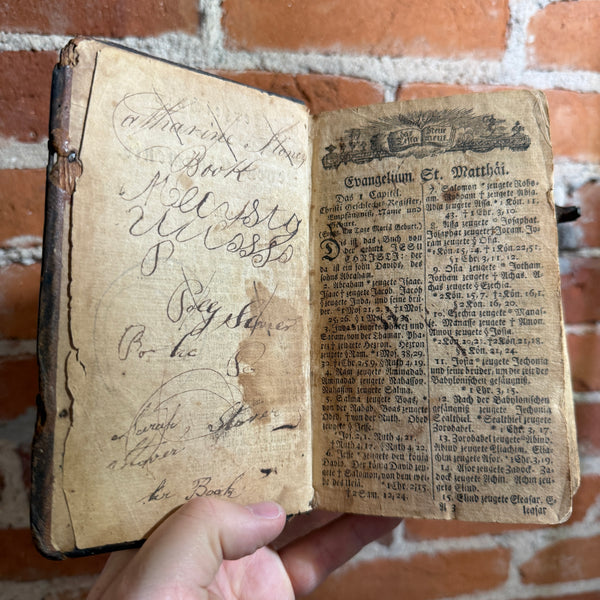 Catharine Stover
Book
Polly Stover
Sarah Stover
Stover
her Book
das neue
Testa ment.
Evangelium St. Matthäi.
Das 1 Capitel.
Christi Geschlechts-Register,
Empfängniß, Name und
Geburt.
(Ev. am Tage Mariä Geburt.)
Dis ist das Buch von
der Geburt JESU
CHRISTI: der
da ist ein sohn Davids, des
sohns Abraham.
2. Abraham * zeugete Isaac.
Isaac † zeugete Jacob. Jacob
‡ zeugete Juda, und seine brü-
der. * 1 Mos. 21, 2.
3. Juda * zeugete Pharez und
Saram, von der Thamar. Pha-
rez † zeugete Hezron. Hezron
zeugete § Ram. * 1 Mos. 38, 29.
4. Ram zeugete Aminadab.
Aminadab zeugete Nahasson.
Nahasson zeugete Salma.
5. Salma zeugete Boas, von
der Rahab. Boas zeugete
Obed, von der Ruth. Obed
zeugete Jesse.
6. Jesse * zeugete den könig
David. Der könig David zeuge-
te † Salomon, von dem weib
des Uriä.
† 2 Sam. 12, 24.
7. Salomon * zeugete Robo-
am. Roboam † zeugete Abia.
Abia zeugete Assa. * 1 Kön. 11,
43. † 1 Chr. 3, 10.
8. Assa zeugete * Josaphat.
Josaphat zeugete Joram. Jo-
ram zeugete § Osia.
9. Osia zeugete * Jotham.
Jotham zeugete † Achas. Achas
zeugete Ezechia.
* 2 Kön. 15, 7. † 2 Kön. 16, 1.
§ 2 Kön. 16, 20.
10. Ezechia zeugete * Manas-
se. Manasse zeugete † Amon.
Amon zeugete Josia.
11. Josia * zeugete Jechonia
und seine brüder, um die zeit der
Babylonischen gefängniß.
* 1 Chr. 3, 15.
12. Nach der Babylonischen
gefängniß zeugete Jechonia
Sealthiel. Sealthiel * zeugete
Zorobabel. * 1 Chr. 3, 17.
13. Zorobabel zeugete * Abiud.
Abiud zeugete Eliachim. Elia-
chim zeugete Asor. * 1 Chr. 3, 19.
14. Asor zeugete Zadock. Za-
dock zeugete Achin. Achin zeu-
gete Eliud.
15. Eliud zeugete Eleasar. E-
A 3 leasar